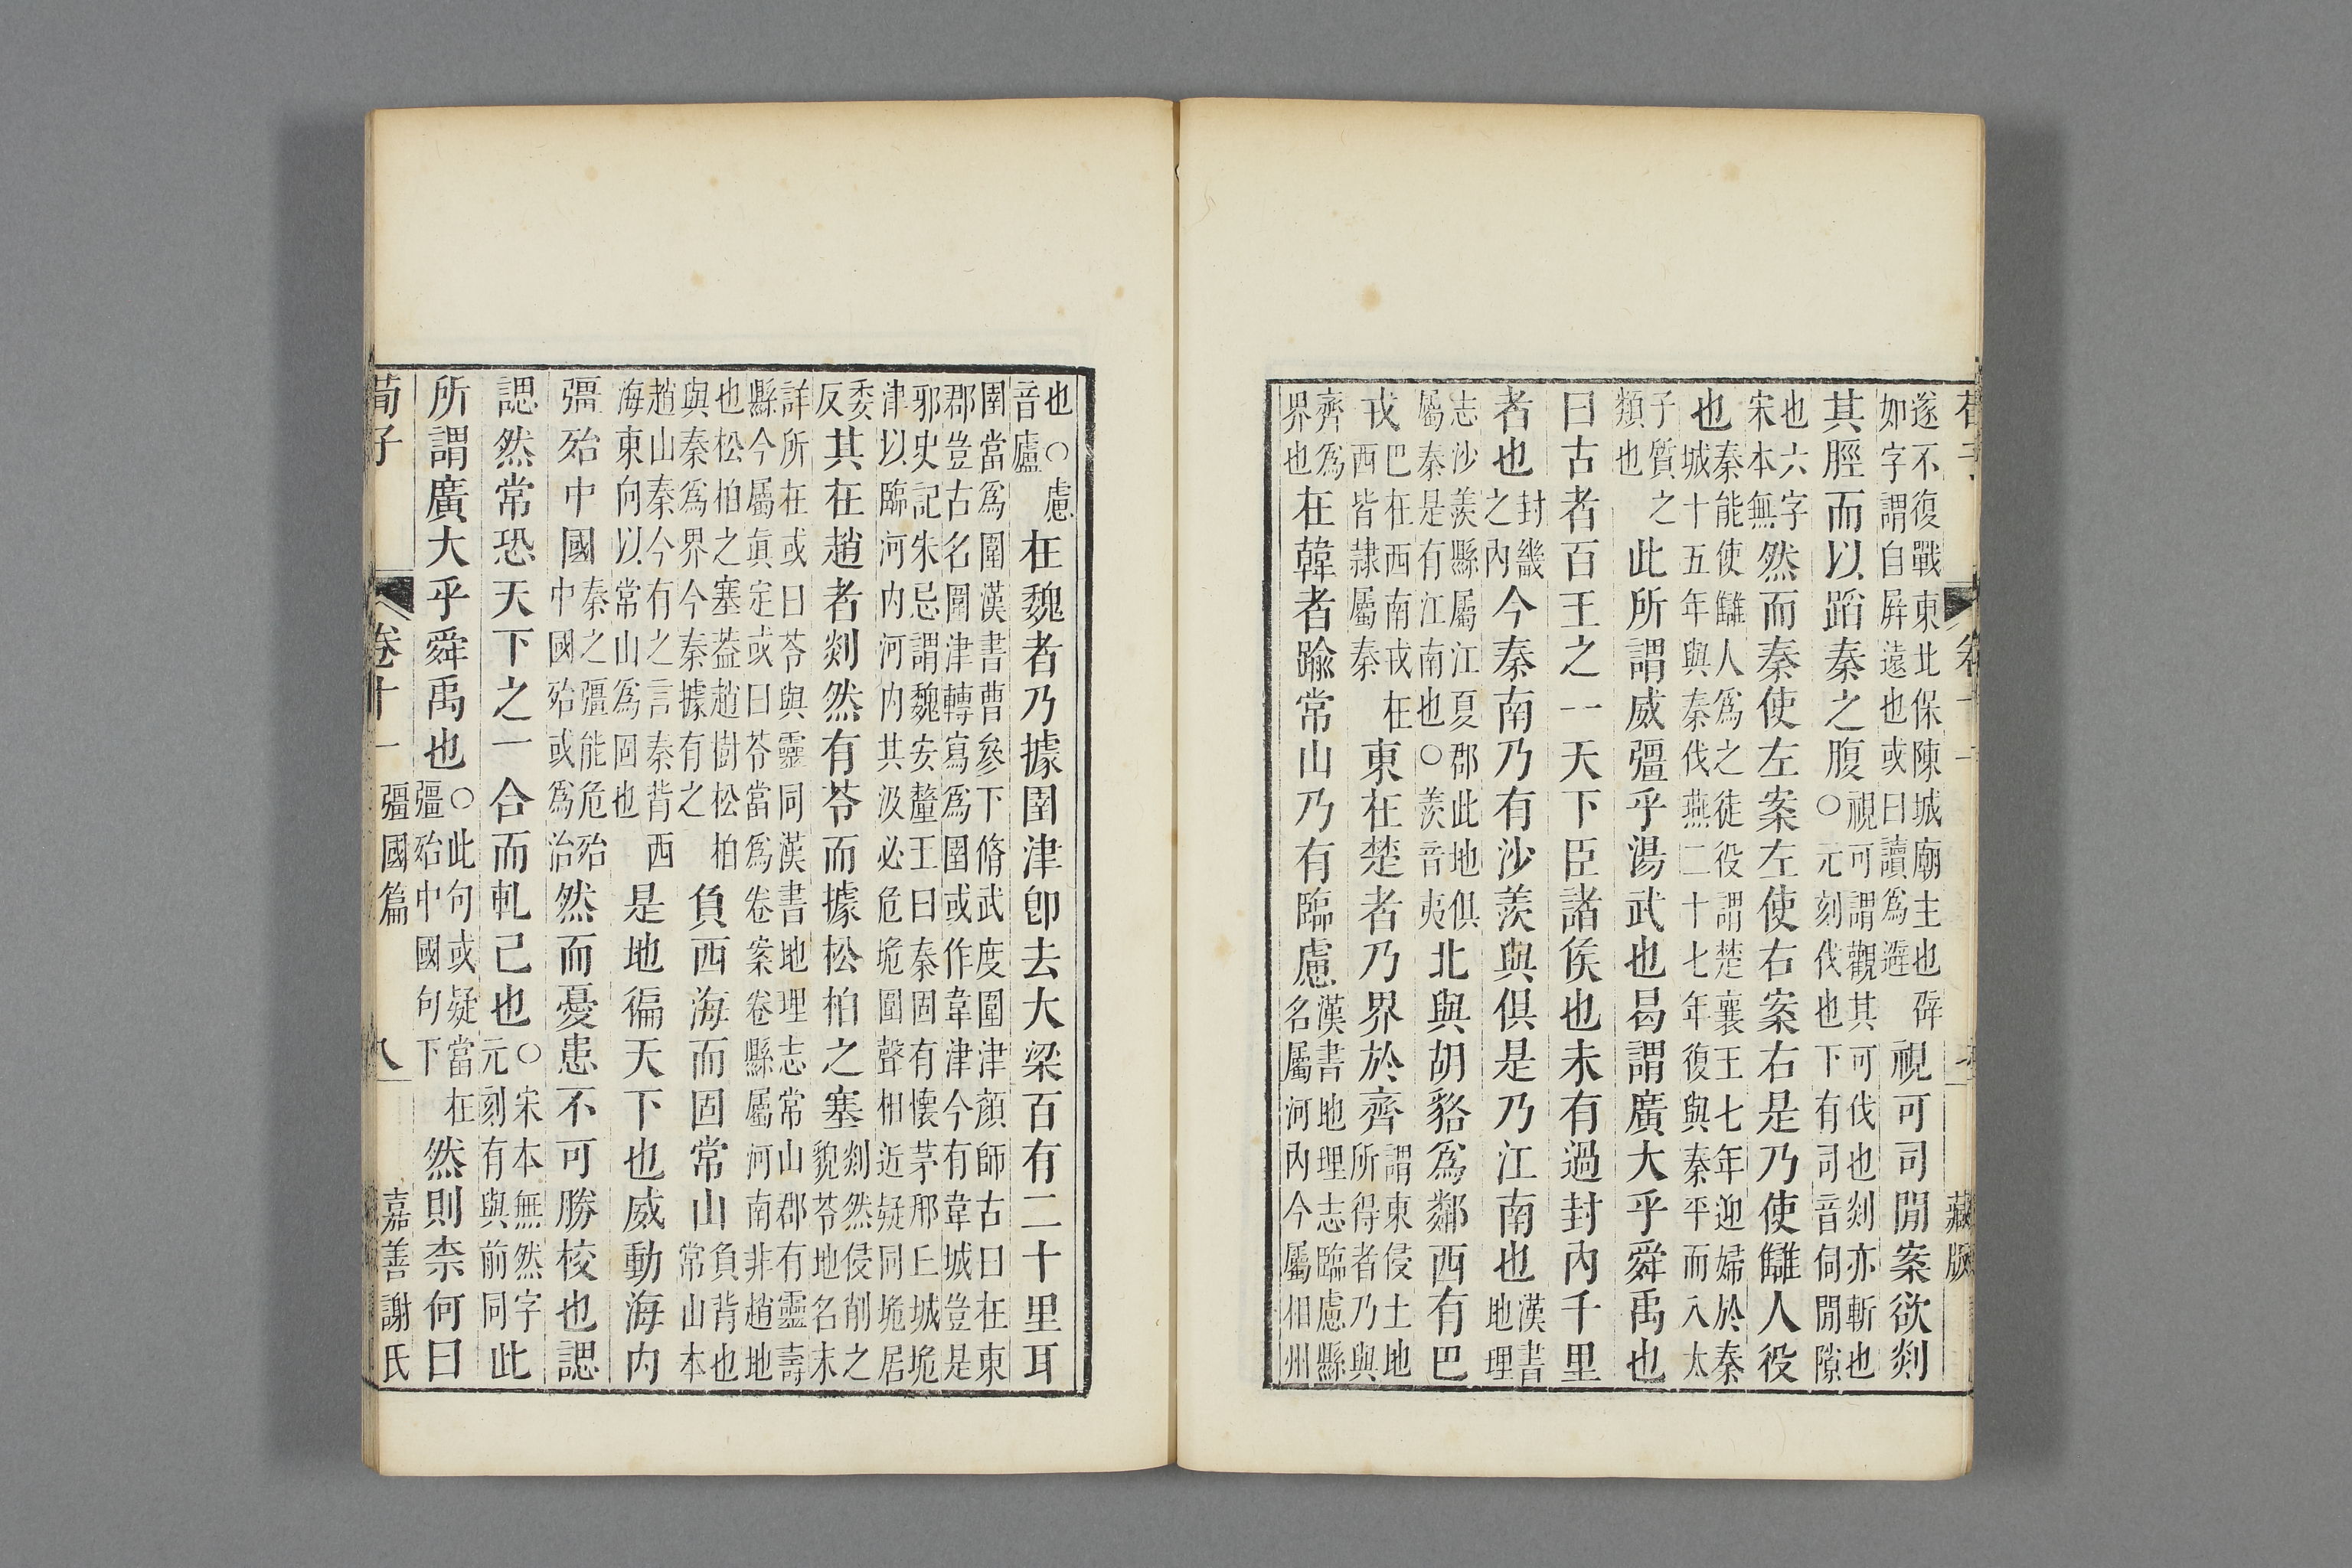 藏版
遂不復戰東北保陳城廟主也辟
如字謂自屏遠也或曰讀爲避
視可司閒案欲剡
其脛而以蹈秦之腹
視可謂觀其可伐也剡亦斬也
○元刻伐也下有司音伺閒隙
也六字
宋本無
然而秦使左案左使右案右是乃使讎人役
也
秦能使讎人爲之徒役謂楚襄王七年迎婦於秦
城十五年與秦伐燕二十七年復與秦平而入太
子質之
類也
此所謂威彊乎湯武也曷謂廣大乎舜禹也
曰古者百王之一天下臣諸侯也未有過封內千里
者也
封畿
之內
今秦南乃有沙羨與俱是乃江南也
漢書
地理
志沙羨縣屬江夏郡此地俱
屬秦是有江南也○羨音夷
北與胡貉爲鄰西有巴
戎
巴在西南戎在
西皆隷屬秦
東在楚者乃界於齊
謂東侵土地
所得者乃與
齊爲
界也
在韓者踰常山乃有臨慮
漢書地理志臨慮縣
名屬河內今屬相州
也○慮
音廬
在魏者乃據圉津卽去大梁百有二十里耳
圉當爲圍漢書曹參下脩武度圍津顔師古曰在東
郡豈古名圉津轉寫爲圍或作韋津今有韋城豈是
邪史記朱忌謂魏安釐王曰秦固有懷茅邢丘城垝
津以臨河內河內共汲必危垝圍聲相近疑同垝居
委
反
其在趙者剡然有苓而據松柏之塞
剡然侵削之
貌苓地名未
詳所在或曰苓與靈同漢書地理志常山郡有靈壽
縣今屬眞定或曰苓當爲卷案卷縣屬河南非趙地
也松柏之塞葢趙樹松柏
與秦爲界今秦據有之
負西海而固常山
負背也
常山本
趙山秦今有之言秦背西
海東向以常山爲固也
是地徧天下也威動海內
彊殆中國
秦之彊能危殆
中國殆或爲治
然而憂患不可勝校也諰
諰然常恐天下之一合而軋己也
○宋本無然字
元刻有與前同
此
所謂廣大乎舜禹也
○此句或疑當在
彊殆中國句下
然則柰何曰
荀子 卷十一 彊國篇 八 嘉善謝氏